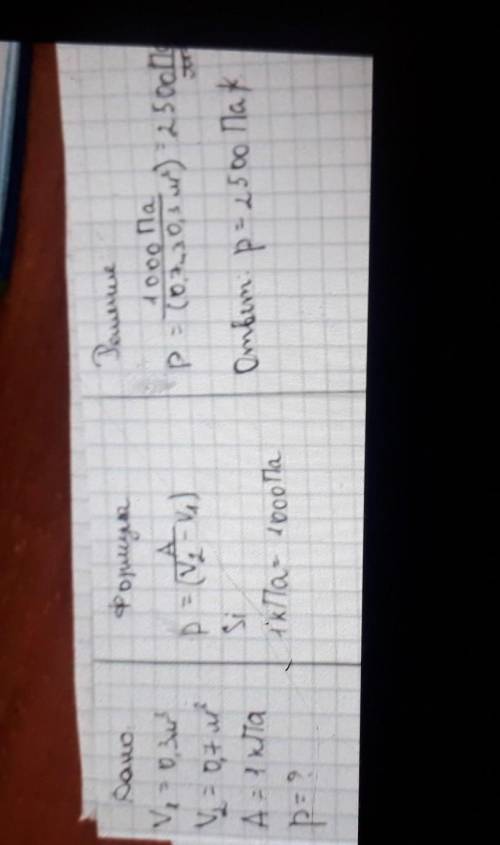 Дано:
V₁ = 0,3м³
V₂ = 0,7м³
A = 1кПа
p = ?
Формула
p = A/(V₂ - V₁)
Si
1кПа = 1000Па
Решение
p = 1000Па/(0,7м³ 0,3м³) = 2500
Ответ: p = 2500 Па